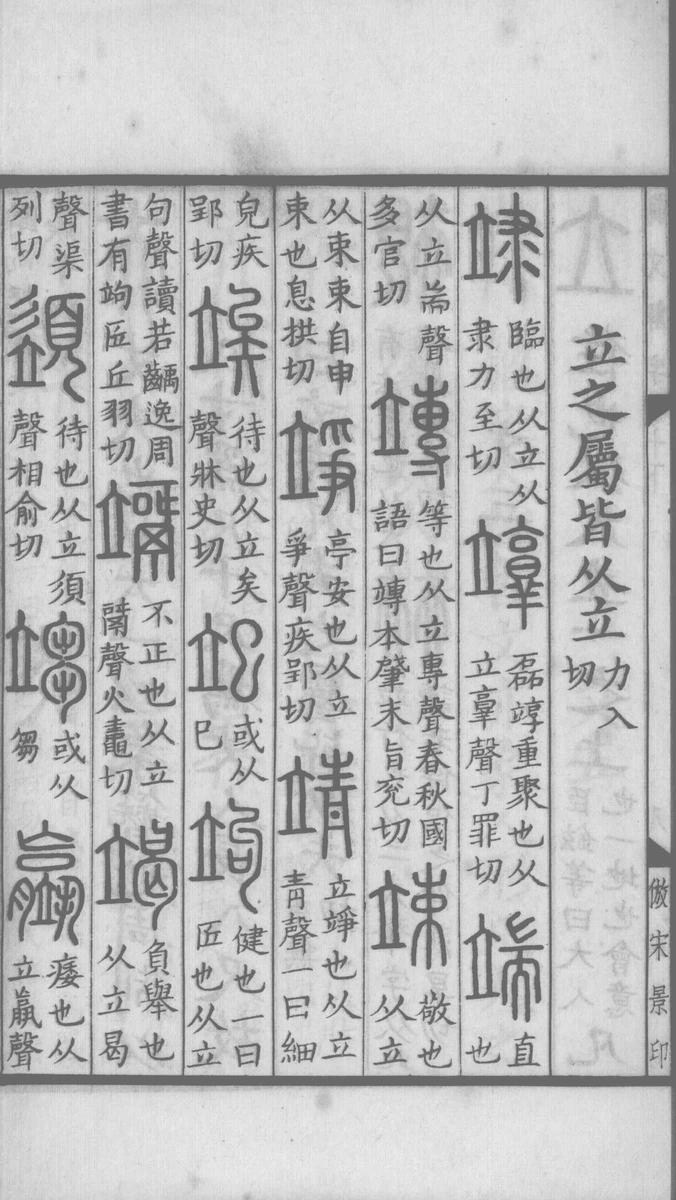 立之屬皆从立力入切
𥩳臨也从立从隶力至切𥫂磊䇏重聚也从立𦎧聲丁罪切端直也
从立耑聲多官切竱等也从立專聲春秋國語曰竱本肇末旨兖切竦敬也从立
从束束自申束也息拱切竫亭安也从立爭聲疾郢切靖立竫也从立青聲一曰細
皃疾郢切竢待也从立矣聲牀史切𥩬或从巳竘健也一曰匠也从立
句聲讀若齲逸周書有竘匠丘羽切不正也从立聲火鼃切竭負舉也从立曷
聲渠列切䇓待也从立須聲相俞切或从芻痿也从立聲
倣宋景印